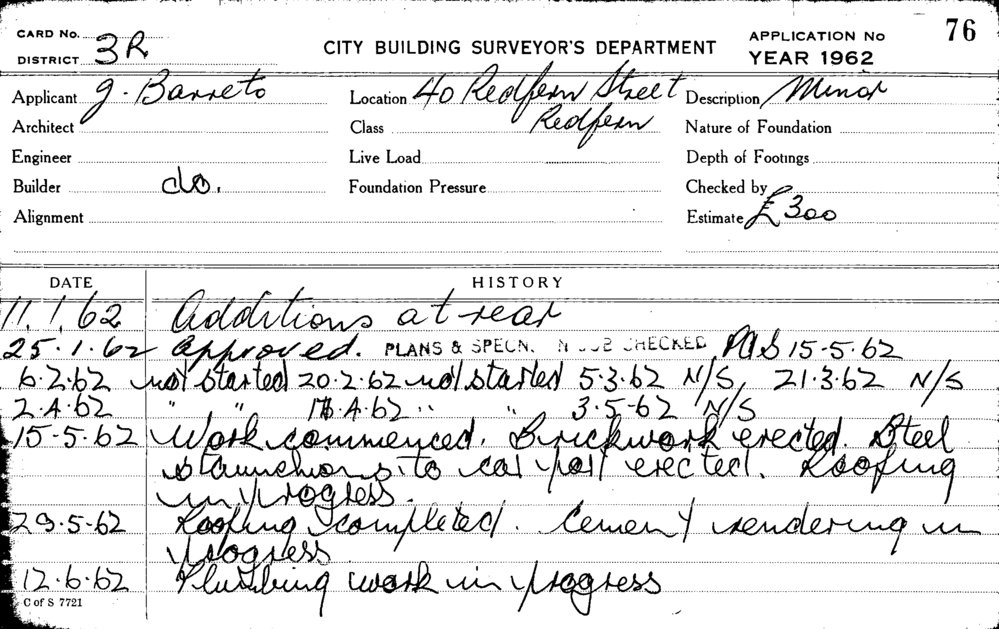 CARD No. DISTRICT 3R CITY BUILDING SURVEYOR'S DEPARTMENT APPLICATION No 76 YEAR 1962
Applicant J. Barreto Location 40 Redfern Street Description Minor
Architect Class Redfern Nature of Foundation
Engineer Live Load Depth of Footings
Builder do. Foundation Pressure Checked by
Alignment Estimate £300
DATE HISTORY
11.1.62 Additions at rear
25.1.62 Approved. PLANS & SPECN. JOB CHECKED 15-5.62
6.2.62 not started 20.2.62 not started 5.3.62 N/S, 21.3.62 N/S
2.4.62 " " .4.62 " " 3.5-62 N/S
15-5.62 Work commenced. Brickwork erected. Steel
staunchions to car port erected. Roofing
in progress.
29.5-62 Roofing completed. Cement rendering in
progress
12.6.62 Plumbing work in progress
C of S 7721